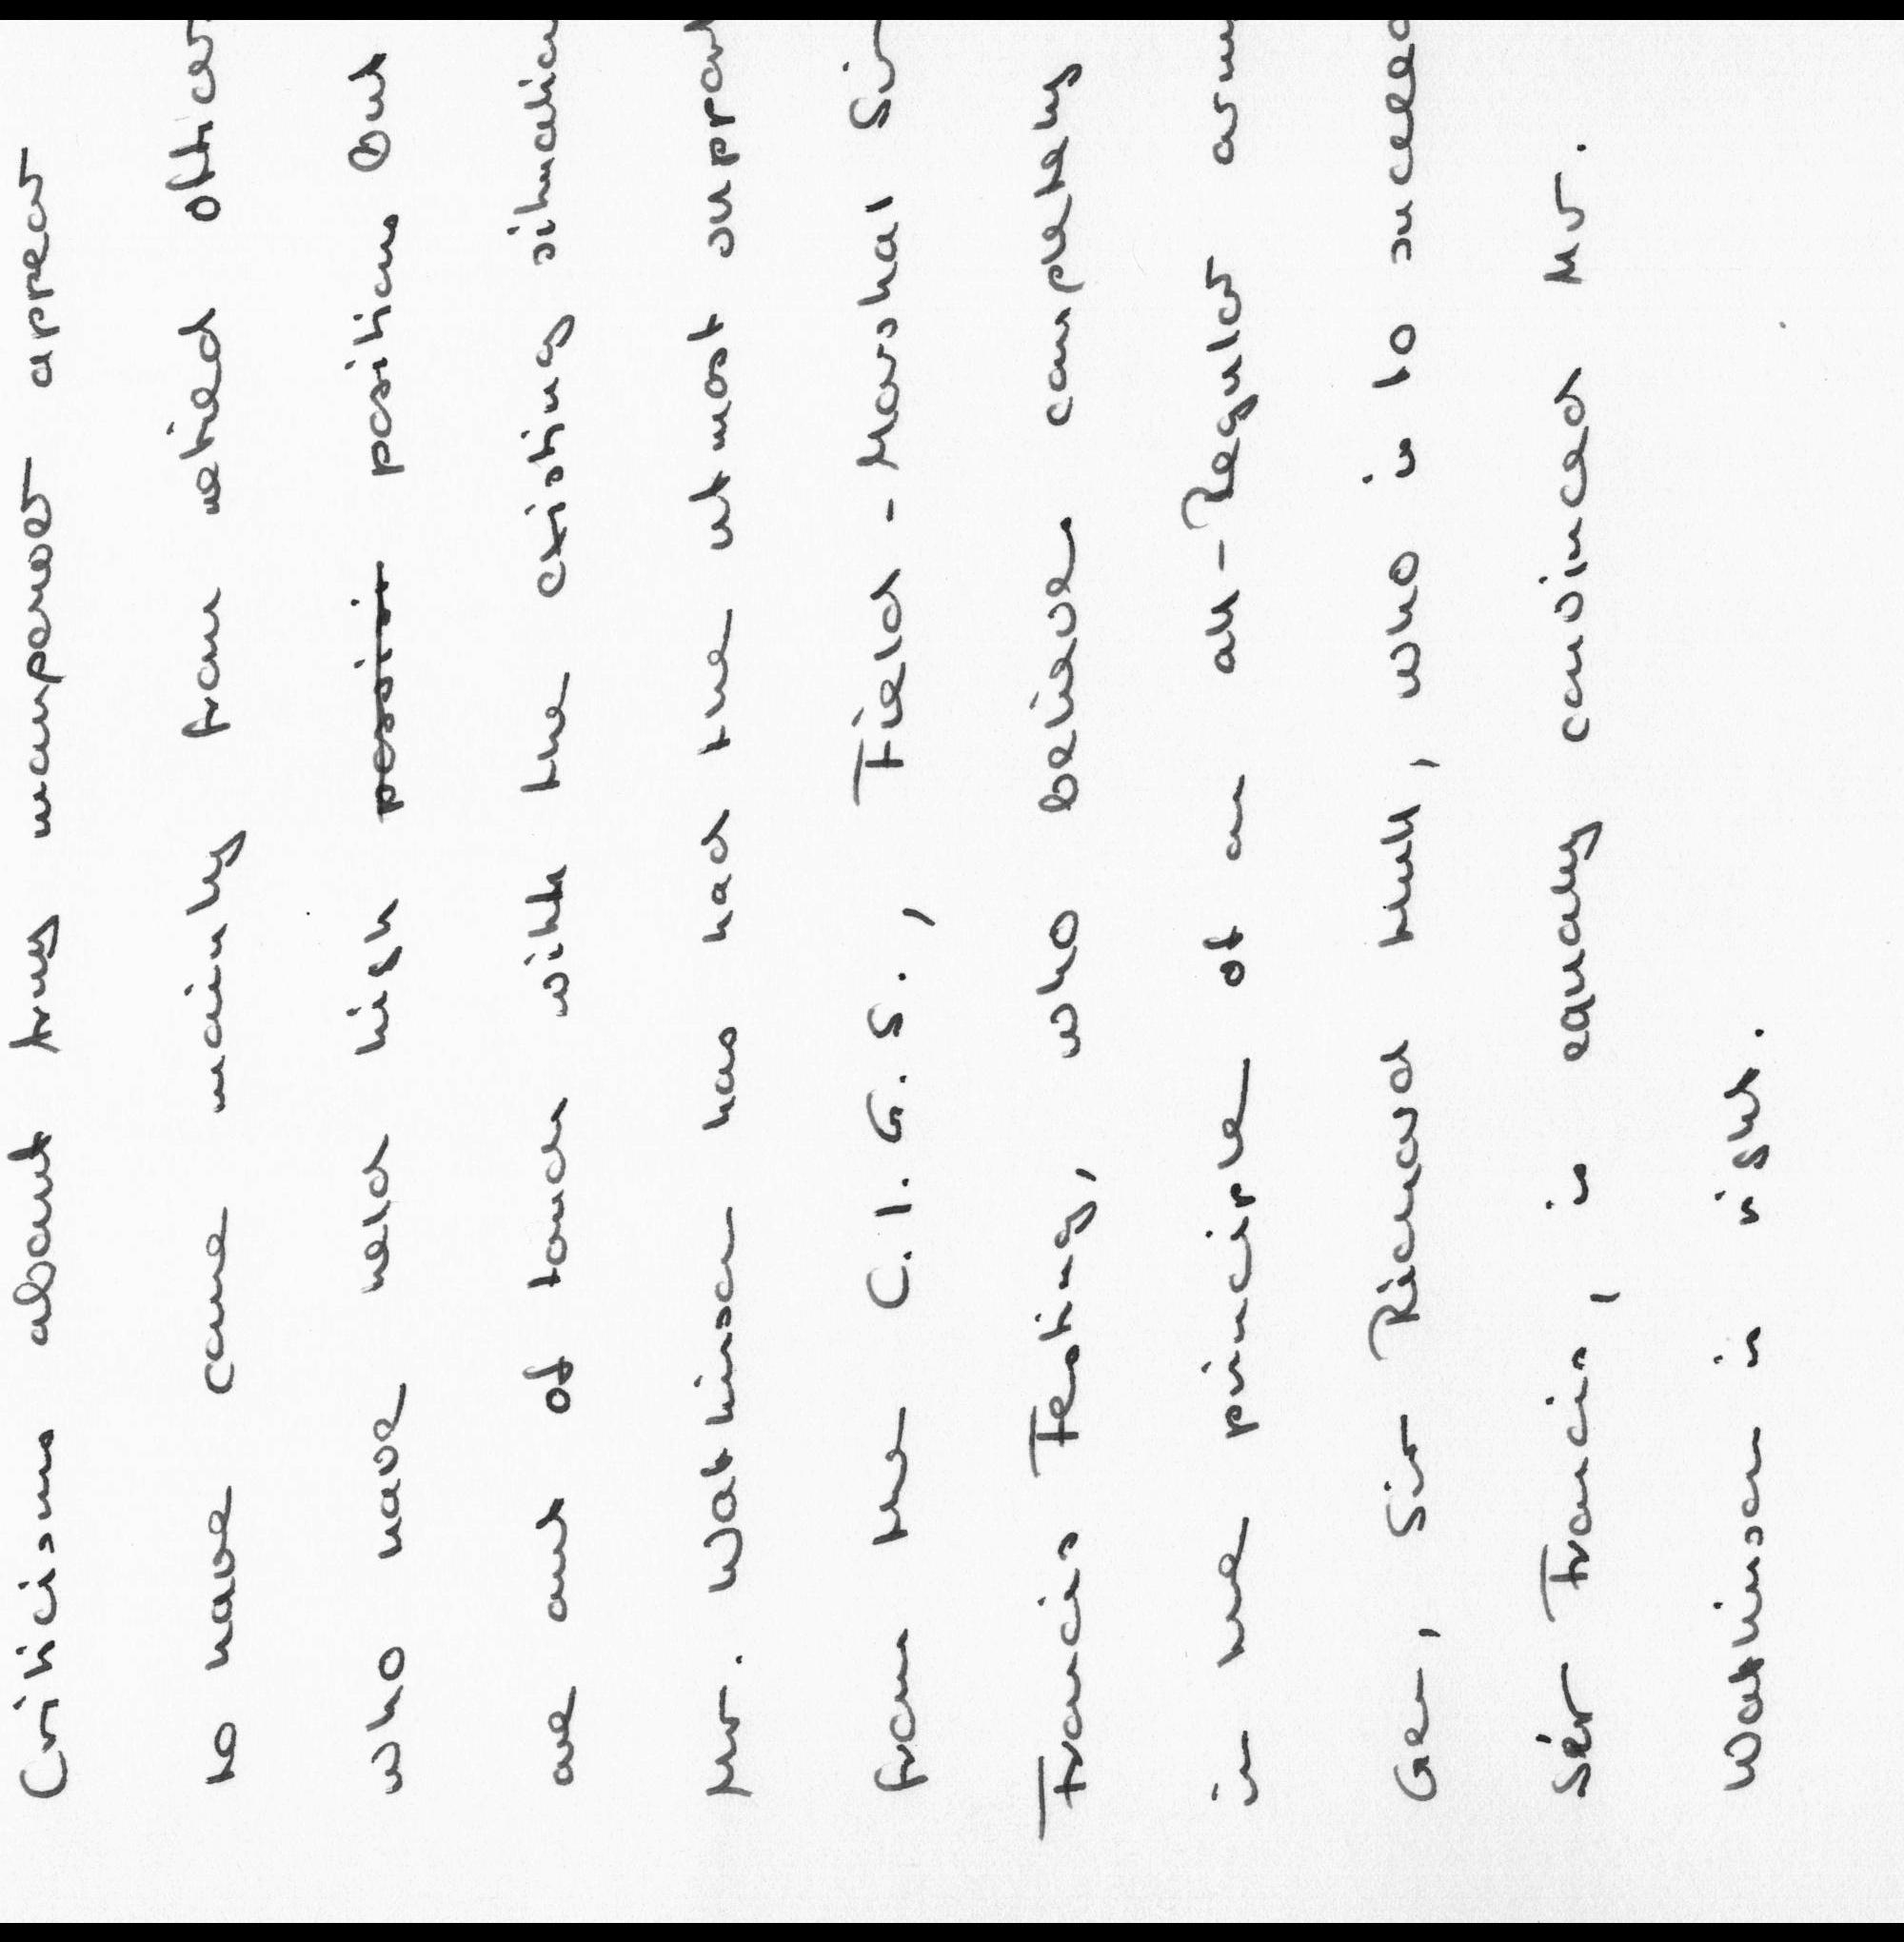 Criticisms about Army manpower appear
to have come mainly from retired officer
who have held high positions But
are out of touch with the existing situation
Mr. Watkinson has had the utmost support
from the C.I.G.S., Field-Marshal Sir
Francis Festing, who believes completely
in the principle of an all-Regular arm
Gen, Sir Richard Hull, who is to succeed
Sir Francis, is equally convinced Mr.
Watkinson is right.